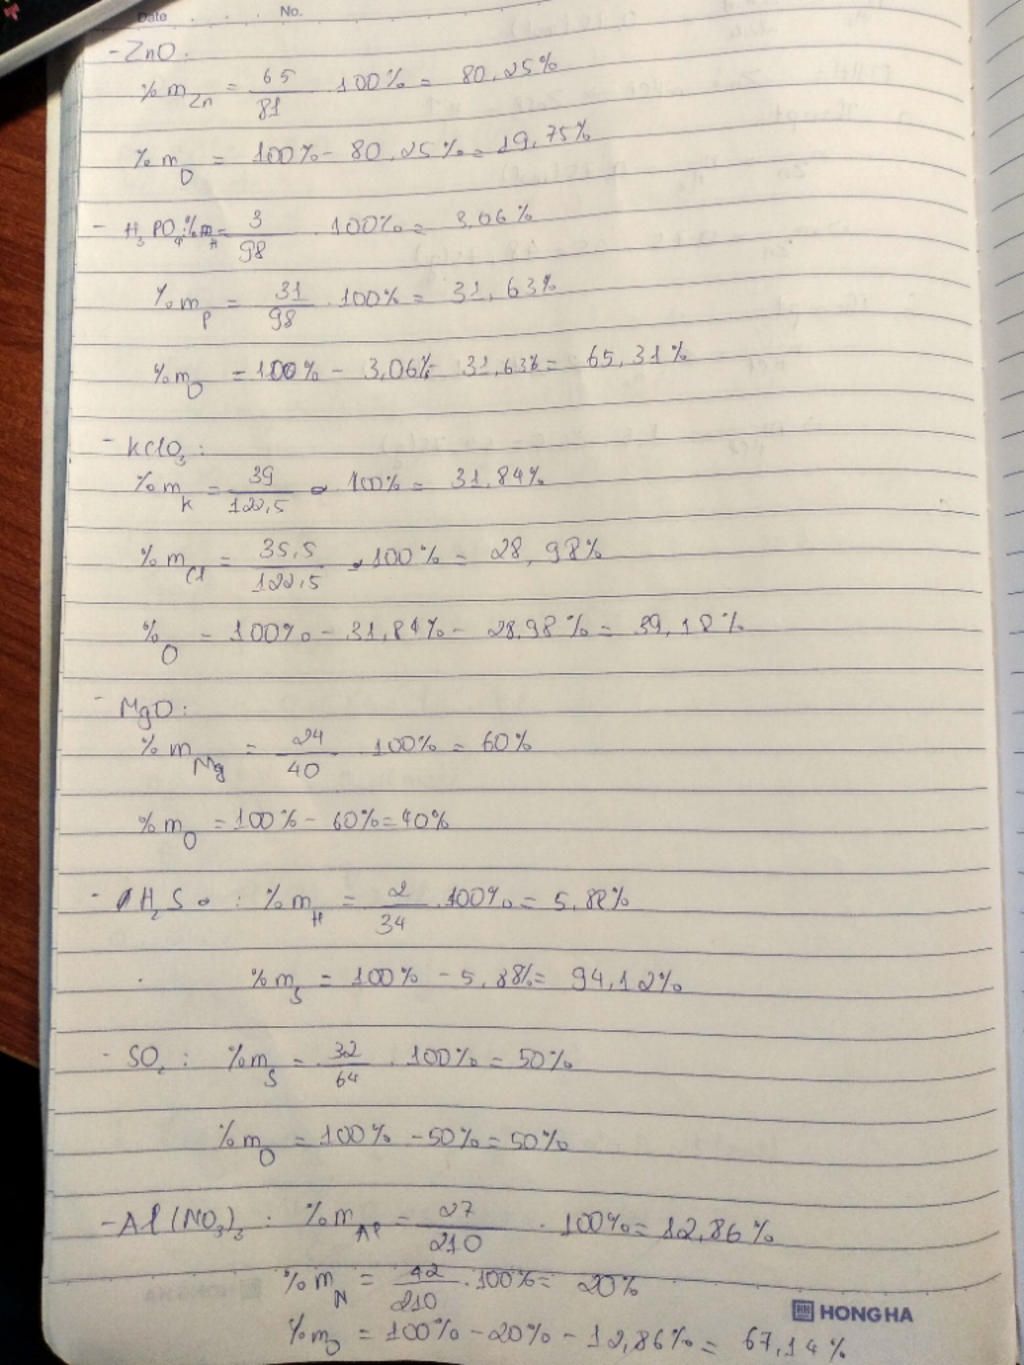 Date No.
- ZnO:
% m Zn = 65/81 . 100% = 80,25%
% m O = 100% - 80,25% = 19,75%
- H3PO4: % m H = 3/98 . 100% = 3,06%
% m P = 31/98 . 100% = 31,63%
% m O = 100% - 3,06% - 31,63% = 65,31%
- KClO3:
% m K = 39/122,5 . 100% = 31,84%
% m Cl = 35,5/122,5 . 100% = 28,98%
% O = 100% - 31,84% - 28,98% = 39,18%
- MgO:
% m Mg = 24/40 . 100% = 60%
% m O = 100% - 60% = 40%
- H2S : % m H = 2/34 . 100% = 5,88%
% m S = 100% - 5,88% = 94,12%
- SO2 : % m S = 32/64 . 100% = 50%
% m O = 100% - 50% = 50%
- Al(NO3)3 : % m Al = 27/210 . 100% = 12,86%
% m N = 42/210 . 100% = 20%
% m O = 100% - 20% - 12,86% = 67,14%
HONG HA